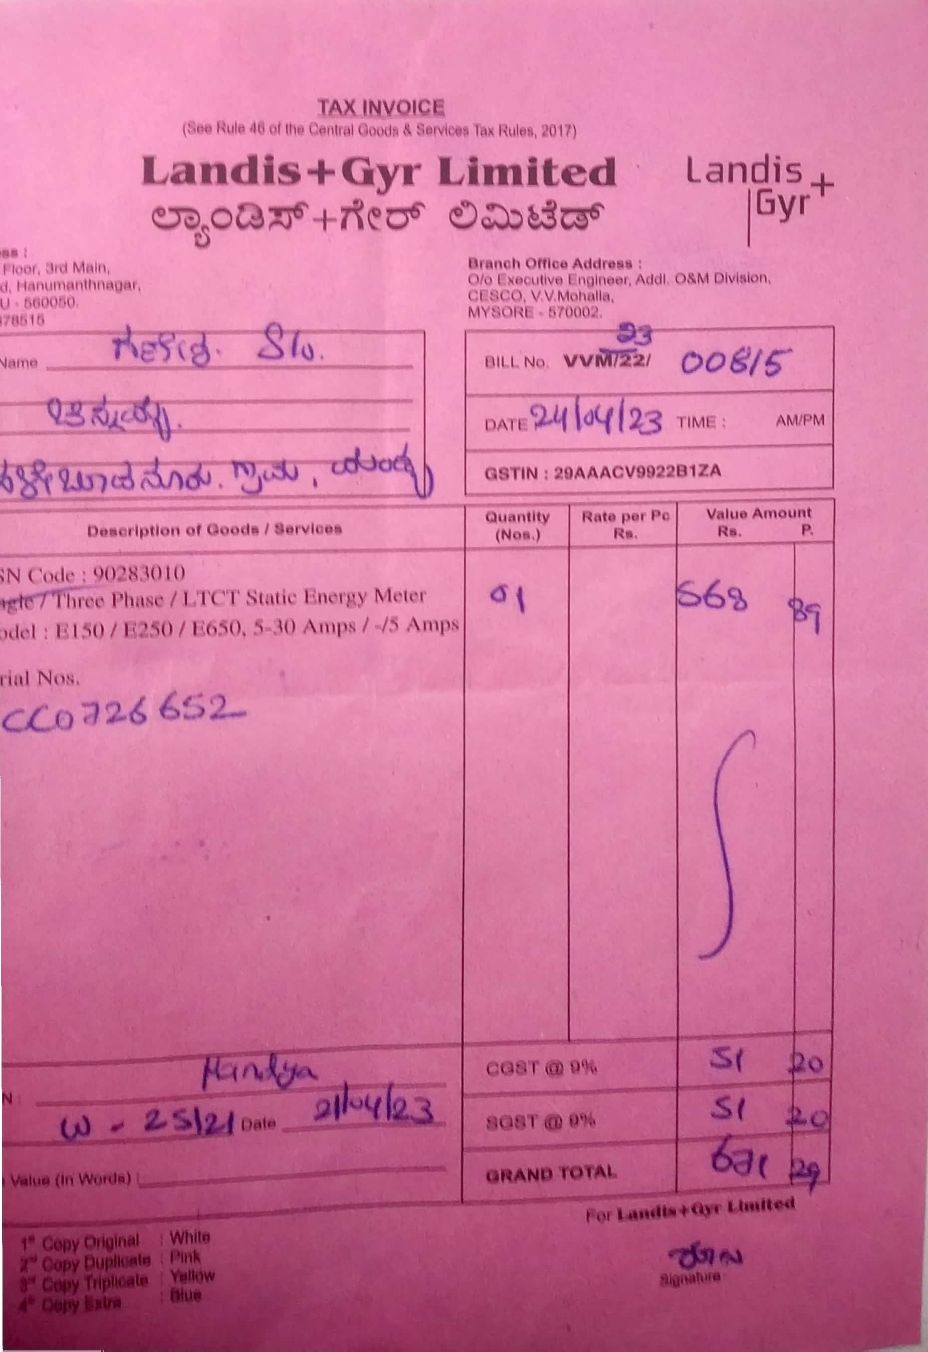 TAX INVOICE
(See Rule 46 of the Central Goods & Services Tax Rules, 2017)
Landis+Gyr Limited
ಲ್ಯಾಂಡಿಸ್+ಗೇರ್ ಲಿಮಿಟೆಡ್
Landis
Gyr+
ess :
Floor, 3rd Main,
d, Hanumanthnagar,
U - 560050.
378515
Branch Office Address :
O/o Executive Engineer, Addl. O&M Division,
CESCO, V.V.Mohalla,
MYSORE - 570002.
Name S/o.
23
BILL No. VVM/22/ 00815
DATE 24/04/23 TIME : AM/PM
GSTIN : 29AAACV9922B1ZA
ಗ್ರಾಮ, ಮಂಡ್ಯ
Description of Goods / Services
Quantity (Nos.)
Rate per Pc Rs.
Value Amount Rs. P.
SN Code : 90283010
ngle / Three Phase / LTCT Static Energy Meter 01 568 89
odel : E150 / E250 / E650, 5-30 Amps / -/5 Amps
rial Nos.
CC0726652
Mandya
CGST @ 9% 51 20
N :
W - 25/21 Date 21/04/23
SGST @ 9% 51 20
Value (In Words)
GRAND TOTAL 671 29
For Landis+Gyr Limited
1st Copy Original : White
2nd Copy Duplicate : Pink
3rd Copy Triplicate : Yellow
4th Copy Extra : Blue
Signature